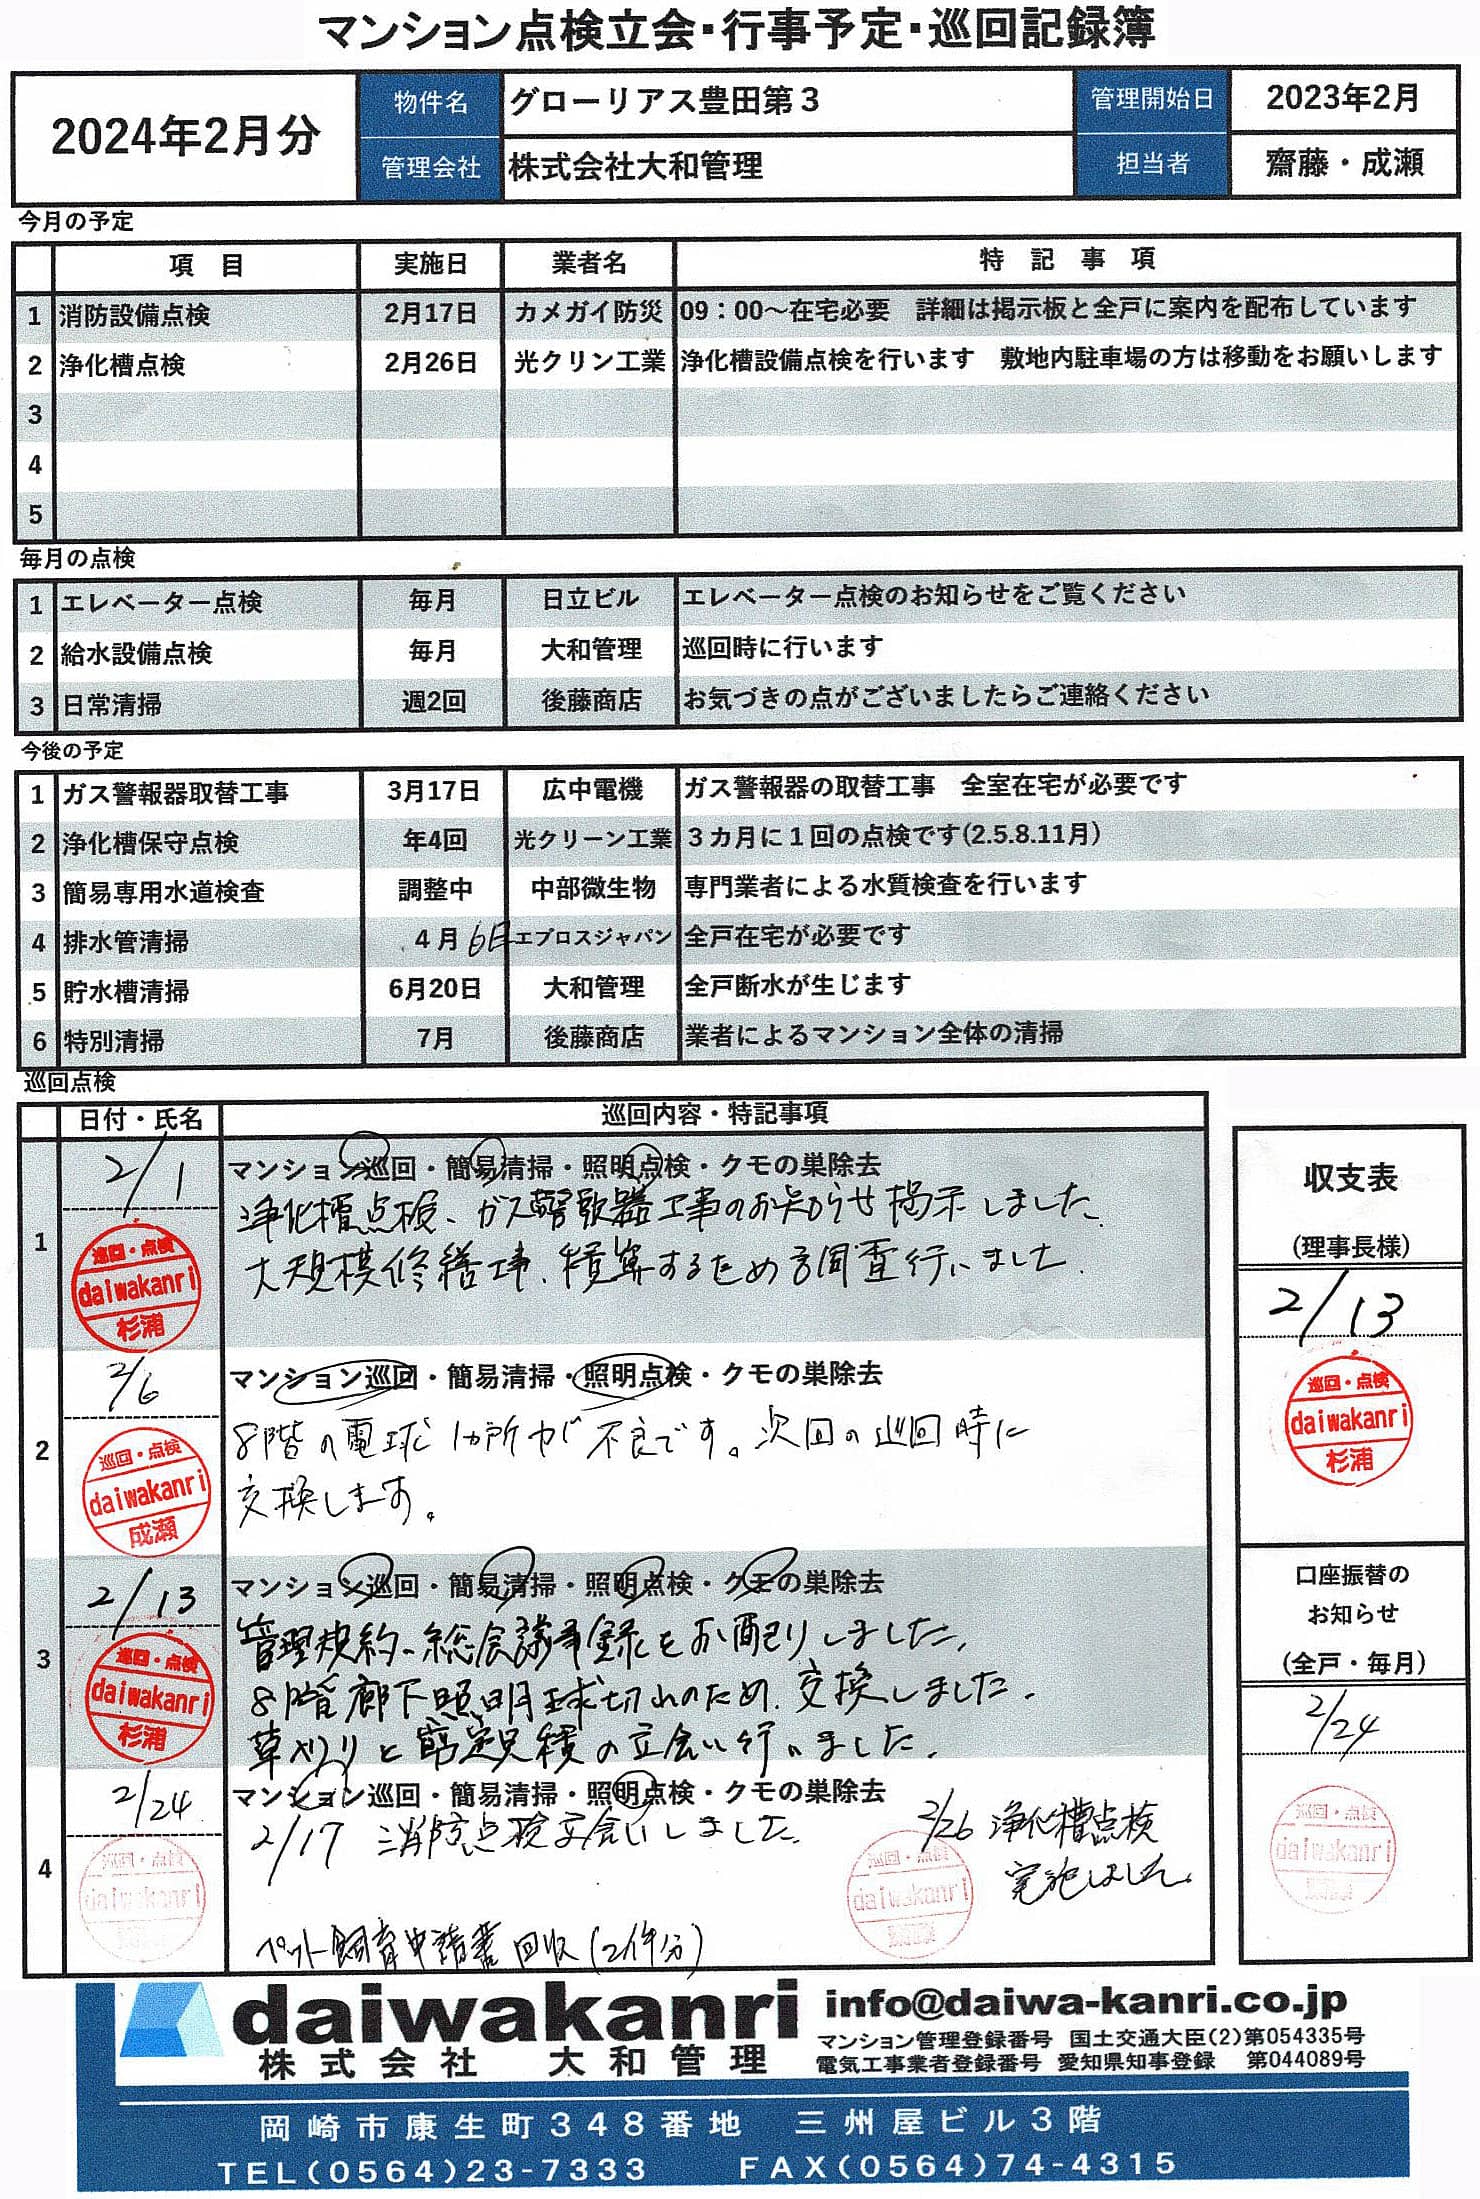 マンション点検立会・行事予定・巡回記録簿
2024年2月分
物件名 グローリアス豊田第３
管理開始日 2023年2月
管理会社 株式会社大和管理
担当者 齋藤・成瀬
今月の予定
項 目 実施日 業者名 特 記 事 項
1 消防設備点検 2月17日 カメガイ防災 09：00～在宅必要 詳細は掲示板と全戸に案内を配布しています
2 浄化槽点検 2月26日 光クリン工業 浄化槽設備点検を行います 敷地内駐車場の方は移動をお願いします
3
4
5
毎月の点検
1 エレベーター点検 毎月 日立ビル エレベーター点検のお知らせをご覧ください
2 給水設備点検 毎月 大和管理 巡回時に行います
3 日常清掃 週2回 後藤商店 お気づきの点がございましたらご連絡ください
今後の予定
1 ガス警報器取替工事 3月17日 広中電機 ガス警報器の取替工事 全室在宅が必要です
2 浄化槽保守点検 年4回 光クリーン工業 ３カ月に１回の点検です(2.5.8.11月)
3 簡易専用水道検査 調整中 中部微生物 専門業者による水質検査を行います
4 排水管清掃 ４月6日 エプロスジャパン 全戸在宅が必要です
5 貯水槽清掃 6月20日 大和管理 全戸断水が生じます
6 特別清掃 7月 後藤商店 業者によるマンション全体の清掃
巡回点検
日付・氏名 巡回内容・特記事項
1
2/1
巡回・点検
daiwakanri
杉浦
マンション巡回・簡易清掃・照明点検・クモの巣除去
浄化槽点検、ガス警報器工事のお知らせ掲示しました.
大規模修繕工事、積算するため調査行いました.
2
2/6
巡回・点検
daiwakanri
成瀬
マンション巡回・簡易清掃・照明点検・クモの巣除去
8階の電球1か所が不良です。次回の巡回時に
交換します。
3
2/13
巡回・点検
daiwakanri
杉浦
マンション巡回・簡易清掃・照明点検・クモの巣除去
管理規約、総会議事録をお配りしました、
8階廊下照明球切れのため、交換しました.
草刈りと剪定見積の立会い行いました.
4
2/24
巡回・点検
daiwakanri
マンション巡回・簡易清掃・照明点検・クモの巣除去
2/17 消防点検立会いしました.
2/26 浄化槽点検
実施しました。
巡回・点検
daiwakanri
ペット飼育申請書回収(2件分)
収支表
(理事長様)
2/13
巡回・点検
daiwakanri
杉浦
口座振替の
お知らせ
(全戸・毎月)
2/24
巡回・点検
daiwakanri
daiwakanri
株式会社 大和管理
info@daiwa-kanri.co.jp
マンション管理登録番号 国土交通大臣(2)第054335号
電気工事業者登録番号 愛知県知事登録 第044089号
岡崎市康生町３４８番地 三州屋ビル３階
TEL(0564)23-7333 FAX(0564)74-4315